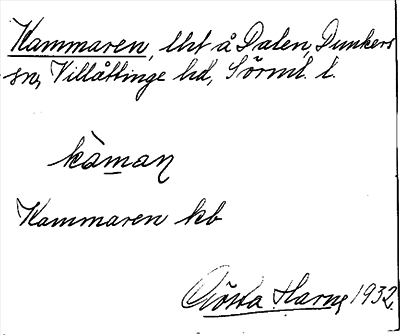 Kammaren, lht å Dalen, Dunkers
sn, Villåttinge hd, Sörml. l.
kàman
Kammaren kb
Gösta Harne 1932.